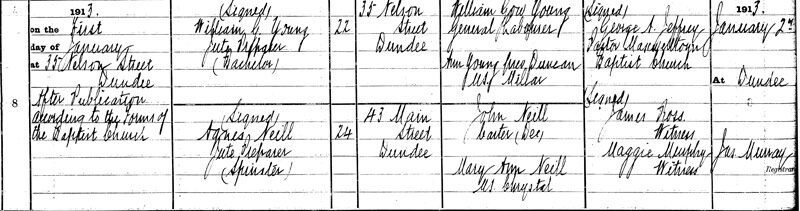 1913.
on the First
day of January
at 35 Nelson Street
Dundee
After Publication
according to the Forms of
the Baptist Church
8
(Signed)
William G. Young
Jute Preparer
(Bachelor)
(Signed)
Agnes Neill
Jute Preparer
(Spinster)
22
24
35 Nelson
Street
Dundee
43 Main
Street
Dundee
William Young
General Labourer
Ann Young Duncan
Millar
John Neill
Carter (Dec)
Mary Ann Neill
M.S. Chrystal
(Signed)
George A. Jeffrey
Pastor
Baptist Church
(Signed)
James Ross
Witness
Maggie Murphy
Witness
1913.
January 2nd
At Dundee
Jas Murray
Registrar